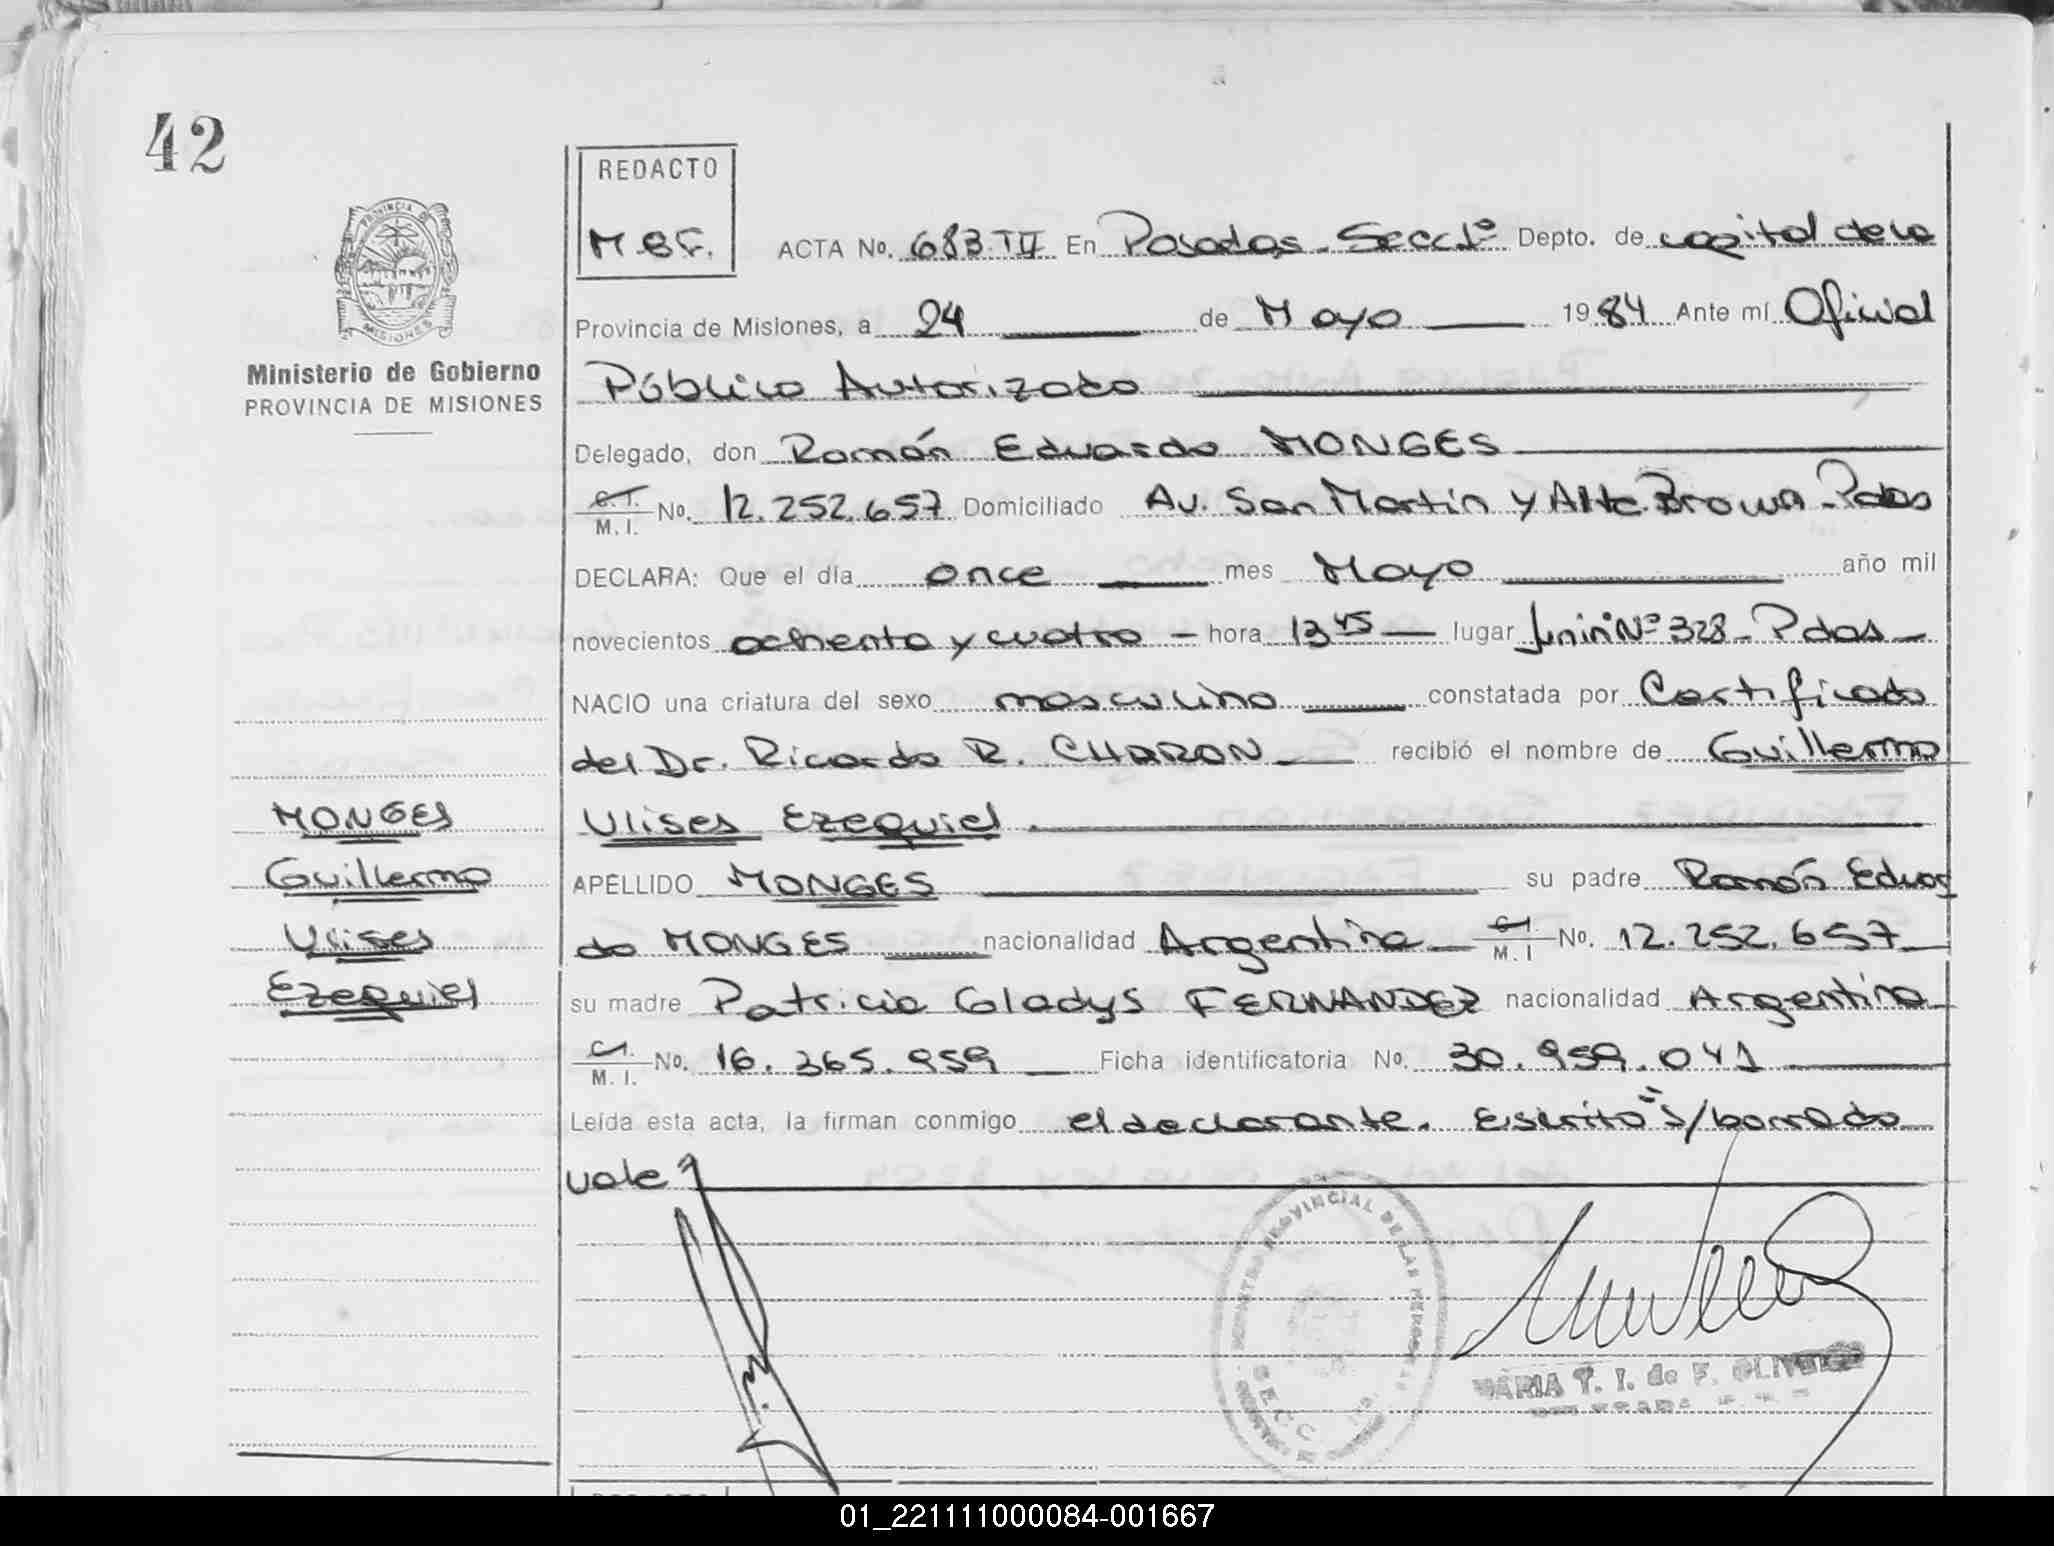 42
REDACTO
M.B.F.
ACTA No. 683.TII En Posadas - Secc. 1º Depto. de capital de la
PROVINCIA DE
MISIONES
Provincia de Misiones, a 24 de Mayo 1984 Ante mí Oficial
Ministerio de Gobierno
PROVINCIA DE MISIONES
Público Autorizado
Delegado, don Ramón Eduardo MONGES
C.I. M.I. No. 12.252.657 Domiciliado Av. San Martín y Alte. Brown - Pdas
DECLARA: Que el día once mes Mayo año mil
novecientos ochenta y cuatro - hora 13 45 - lugar Junin Nº 328 - Pdas -
NACIO una criatura del sexo masculino constatada por Certificado
del Dr. Ricardo R. CHARON recibió el nombre de Guillermo
MONGES
Ulises Ezequiel
Guillermo
APELLIDO MONGES su padre Ramón Eduar
Ulises
do MONGES nacionalidad Argentina C.I. M.I No. 12.252.657
Ezequiel
su madre Patricia Gladys FERNANDEZ nacionalidad Argentina
C.I. M.I. No. 16.365.959 Ficha identificatoria No. 30.959.041
Leída esta acta, la firman conmigo el declarante. Escrito "s/borrado
vale
REGISTRO PROVINCIAL DE LAS PERSONAS
SECC. 1ra.
MARIA T. I. de F. OLIVEIRA
01_221111000084-001667